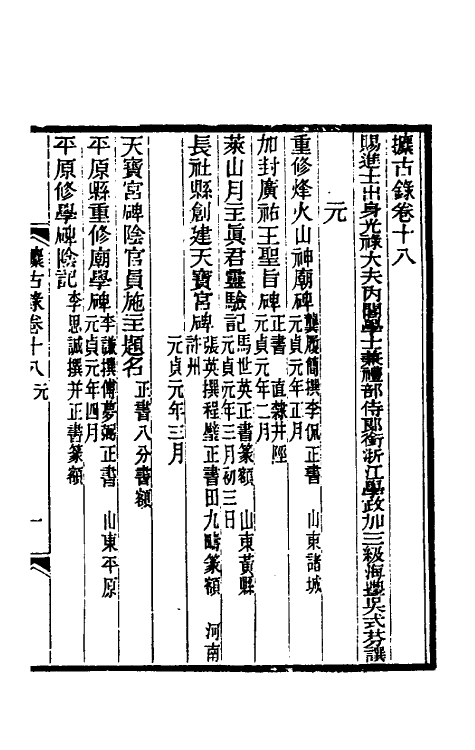 攈古錄卷十八
賜進士出身光祿大夫內閣學士兼禮部侍郎銜浙江學政加三級海豐吳式芬譔
元
重修烽火山神廟碑 龔履簡撰李侃正書 山東諸城 元貞元年正月
加封廣祐王聖旨碑 正書 直隸井陘 元貞元年二月
萊山月主眞君靈驗記 馬世英正書篆額 山東黃縣 元貞元年三月初三日
長社縣創建天寶宮碑 張英撰程璧正書田九疇篆額 河南許州
元貞元年三月
天寶宮碑陰官員施主題名 正書八分書額
平原縣重修廟學碑 李謙撰傅夢弼正書 山東平原 元貞元年四月
平原修學碑陰記 李思誠撰并正書篆額
攈古錄卷十八 元 一